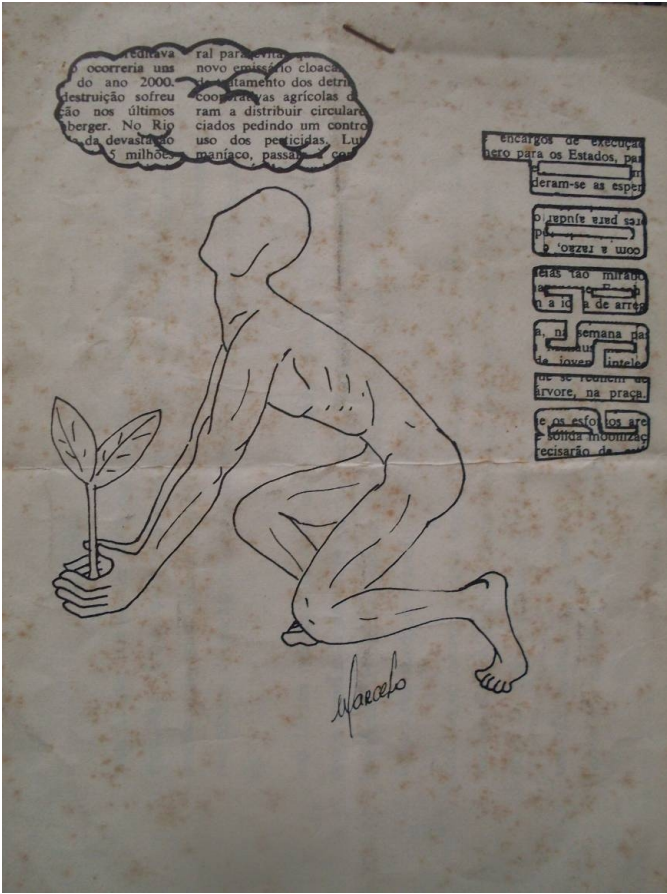 reditava
ocorreria uns
do ano 2000.
destruição sofreu
ção nos últimos
berger. No Rio
da devastação
5 milhões
ral para evitar
novo emissário cloacal
tratamento dos detri
cooperativas agrícolas
ram a distribuir circulare
ciados pedindo um contro
uso dos pesticidas. Lut
maníaco, passa a co
POESIA
encargos de execuçã
nero para os Estados, pa
deram-se as esper
res para ajudar
com a razão, é
ideias tão
a de arre
na semana pa
de jovens intele
que se reúnem de
árvore, na praça.
e os esforços are
sólida mobilizaç
recisarão de
Marcelo